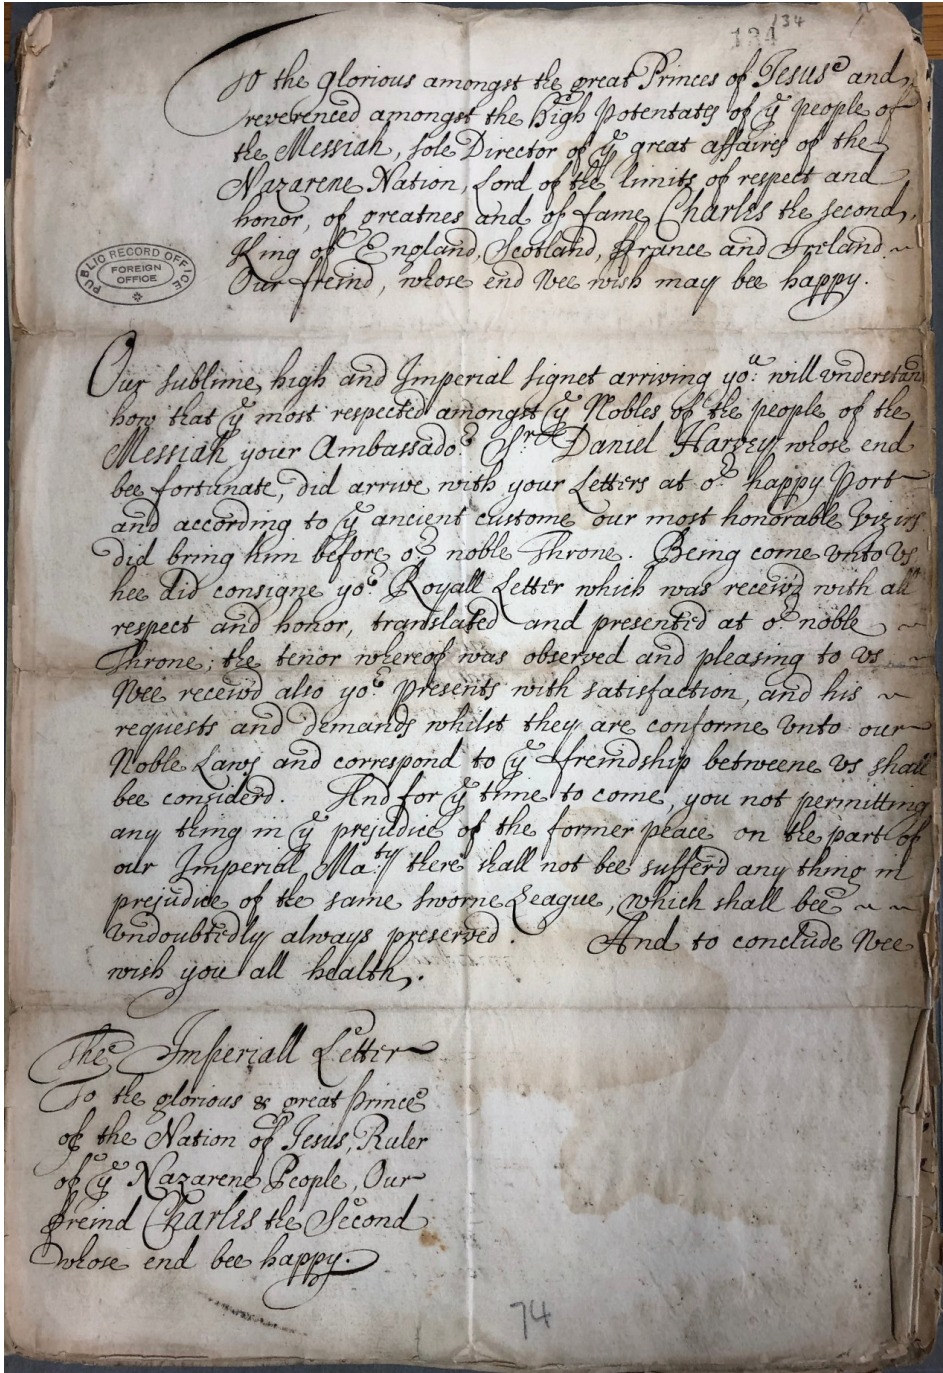 134
134
To the glorious amongst the great Princes of Jesus and
reverenced amongst the High Potentates of yᵉ people of
the Messiah, sole Director of yᵉ great affaires of the
Nazarene Nation, Lord of the limits of respect and
honor, of greatnes and of fame, Charles the second,
King of England, Scotland, ffrance and Ireland.~
Our freind, whose end Wee wish may bee happy.
PUBLIC RECORD OFFICE
FOREIGN
OFFICE
Our sublime, high and Imperial signet arriving yoᵘ: will vnderstan
how that yᵉ most respected amongst yᵉ Nobles of the people of the
Messiah your Ambassadoʳ: Sʳ Daniel Harvey whose end
bee fortunate, did arrive with your Letters at oʳ: happy Port
and according to yᵉ ancient custome our most honorable Vizirs
did bring him before oʳ: noble Throne. Being come vnto vs
hee did consigne yoʳ: Royall Letter which was receivd with all
respect and honor, translated and presented at oʳ: noble ~
Throne; the tenor whereof was observed and pleasing to vs ~
Wee receivd also yoʳ: presents with satisfaction, and his ~
requests and demands whilst they are conforme vnto our
Noble Laws and correspond to yᵉ freindship betweene vs shall
bee considerd. And for yᵉ time to come, you not permitting
any thing in yᵉ prejudice of the former peace on the part of
our Imperial Maᵗʸ: there shall not bee sufferd any thing in
prejudice of the same sworne League, which shall bee ~ ~
vndoubtedly always preserved. And to conclude Wee
wish you all health,.
The Imperiall Letter
To the glorious & great Prince
of the Nation of Jesus, Ruler
of yᵉ Nazarene People, Our
freind Charles the Second
whose end bee happy.
74